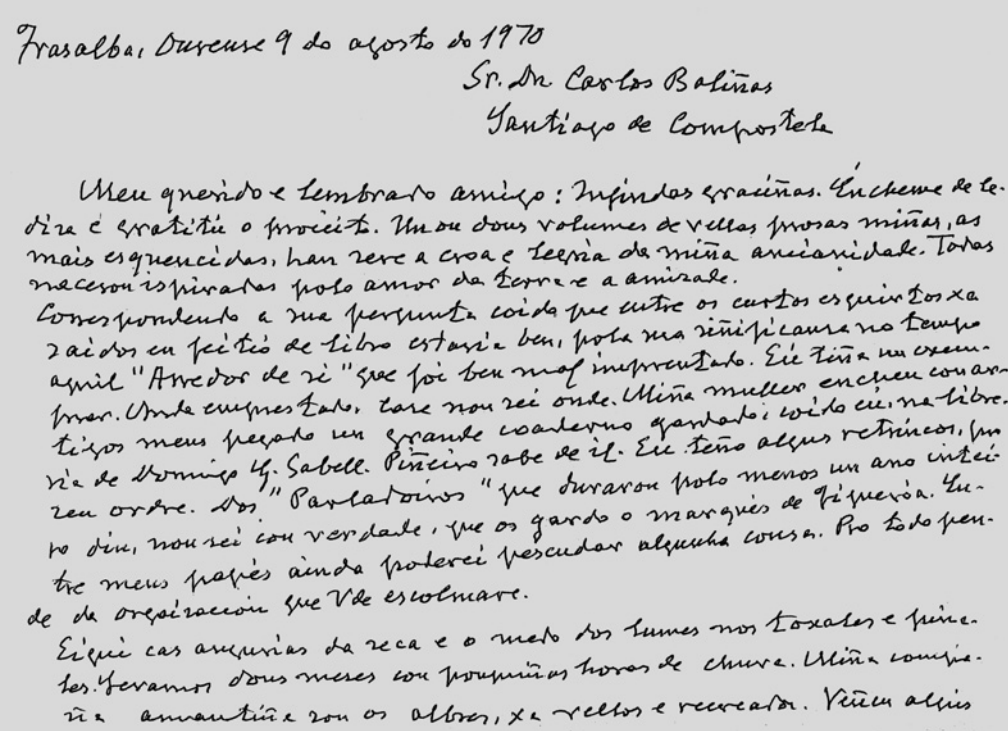 Trasalba, Ourense 9 do agosto do 1970
Sr. Dn. Carlos Baliñas
Santiago de Compostela
Meu querido e lembrado amigo: Infindas graciñas. Encheme de le-
diza é gratitú o proieito. Un ou dous volumes de vellas prosas miñas, as
mais esquencidas, han sere a croa e ledizia da miña ancianidade. Todas
naceron ispiradas polo amor da terra e a amizade.
Correspondendo a sua pergunta coido que entre os curtos esquirtos xa
saidos en feitio de libro estaria ben, pola sua siñificanza no tempo
aquil "Arredor de si" que foi ben mal imprentado. Eu tiña un exem-
prar. Anda emprestado, case non sei onde. Miña muller encheu con ar-
tigos meus pegado un grande coaderno gardado, coido eu, na libre-
ria de Domingo G. Sabell. Piñeiro sabe de il. Eu teño algus retrincos, sin
seu ordre. Dos "Parladoiros" que duraron polo menos un ano intei-
ro din, non sei con verdade, que os garda o marqués de Figueroa. En-
tre meus papés ainda poderei pescudar algunha cousa. Pro todo pen-
de da orgaización que Vde escolmare.
Eiquí cas angurias da seca e o medo dos lumes nos toxales e pina-
les. Levamos dous meses con pouquiñas horas de chuva. Miña compa-
ñia son os albres, xa vellos e Veñen algús